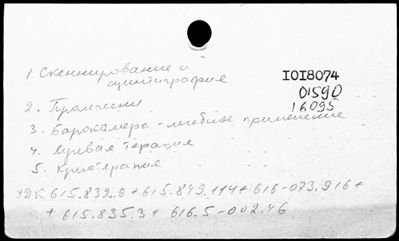 1. Сканирование и
сцинтиграфия
IOI8074
01590
16095
2. Пролежни
3. Барокамера - лечебное применение
4. Лучевая терапия
5. Криотерапия
УДК 615.832.9 + 615.849.114 + 616-073.916 +
+ 615.835.3 + 616.5-002.46